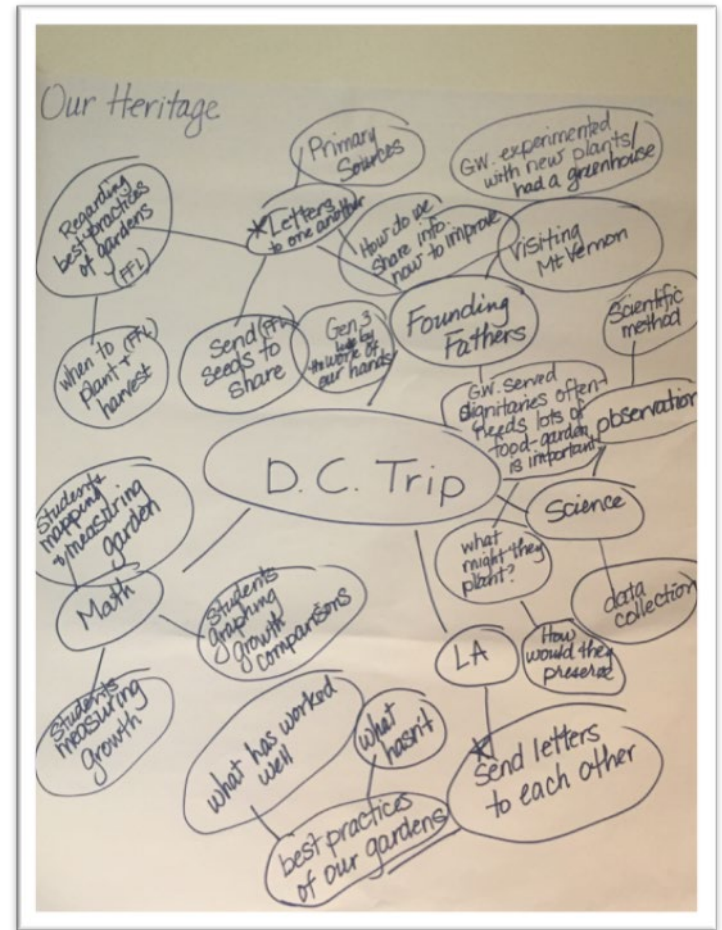 Our Heritage
Primary
Sources
G.W. experimented
with new plants/
had a greenhouse
Regarding
best practices
of gardens
(FFL)
*Letters
to one another
How do we
share info.
now to improve
Visiting
Mt Vernon
Scientific
method
when to (FFL)
plant +
harvest
Send (FFL)
seeds to
share
Gen 3
the work of
our hands
Founding
Fathers
G.W. served
dignitaries often-
needs lots of
food-garden
is important
observation
D.C. Trip
Science
Students
mapping
+ measuring
garden
what
might they
plant?
data
collection
Math
Students
graphing
growth
comparisons
LA
How
would they
preserve
Students
measuring
growth
what has worked
well
what
hasn't
*
Send letters
to each other
best practices
of our gardens